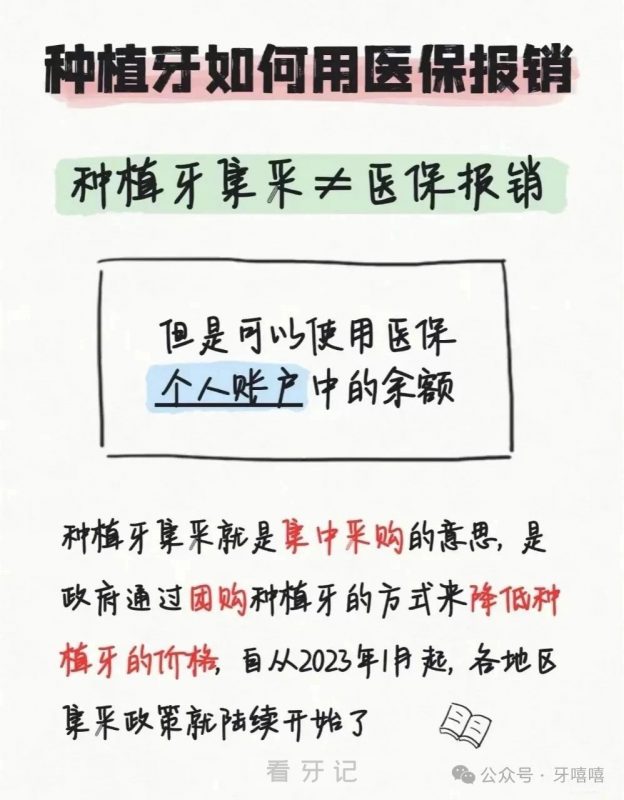 种植牙如何用医保报销
种植牙集采≠医保报销
但是可以使用医保
个人账户中的余额
种植牙集采就是集中采购的意思，是
政府通过团购种植牙的方式来降低种
植牙的价格，自从2023年1月起，各地区
集采政策就陆续开始了
看牙记
公众号·牙嘻嘻